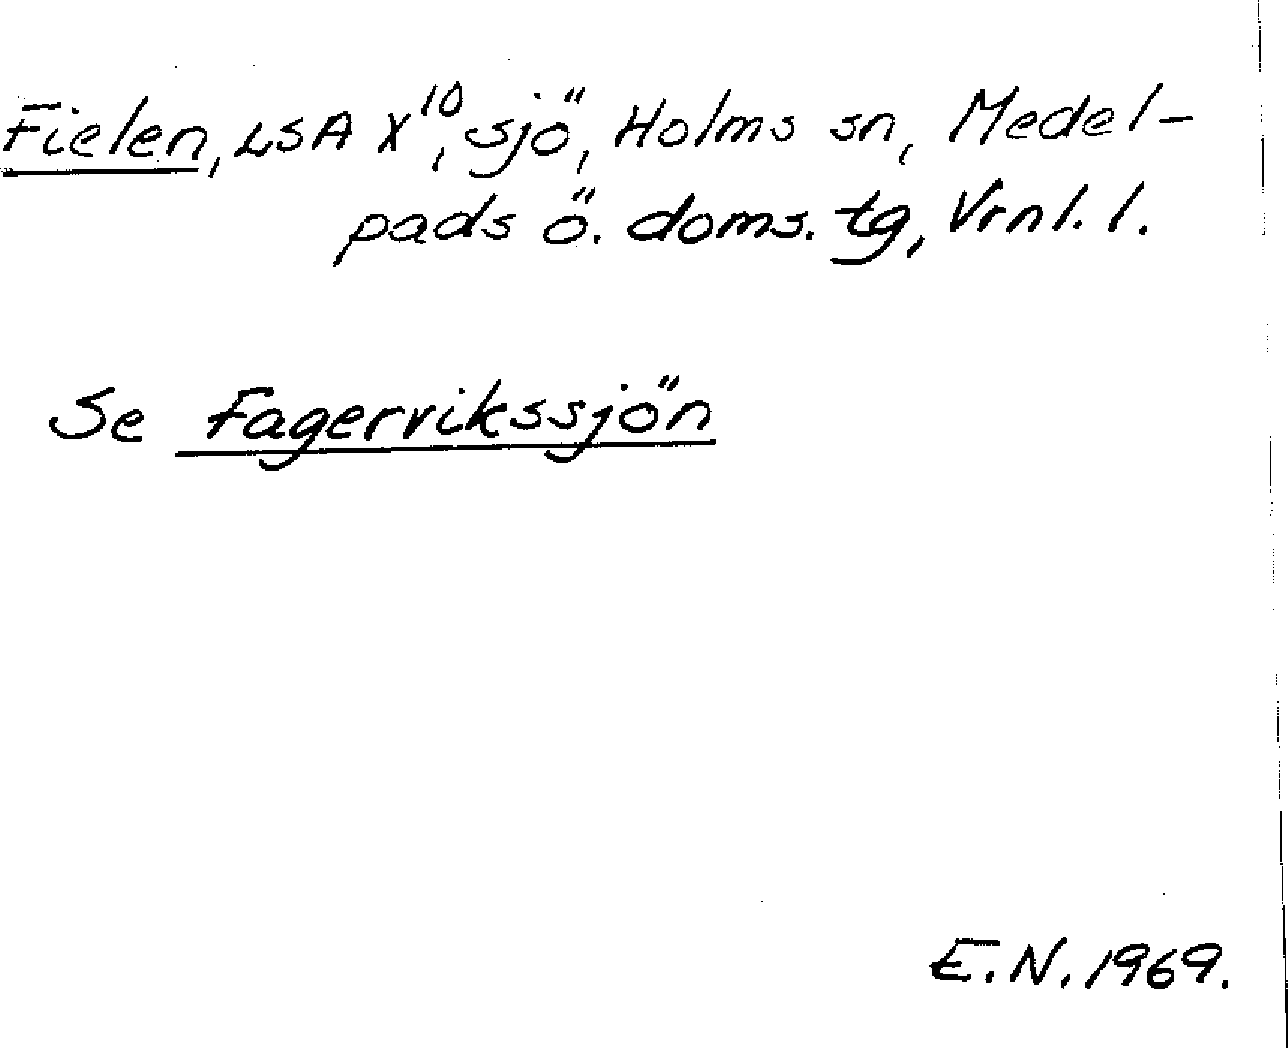 Fielen, LSA X¹⁰, sjö, Holms sn, Medel-
pads ö. doms. tg, Vrnl. l.
Se Fagervikssjön
E.N. 1969.